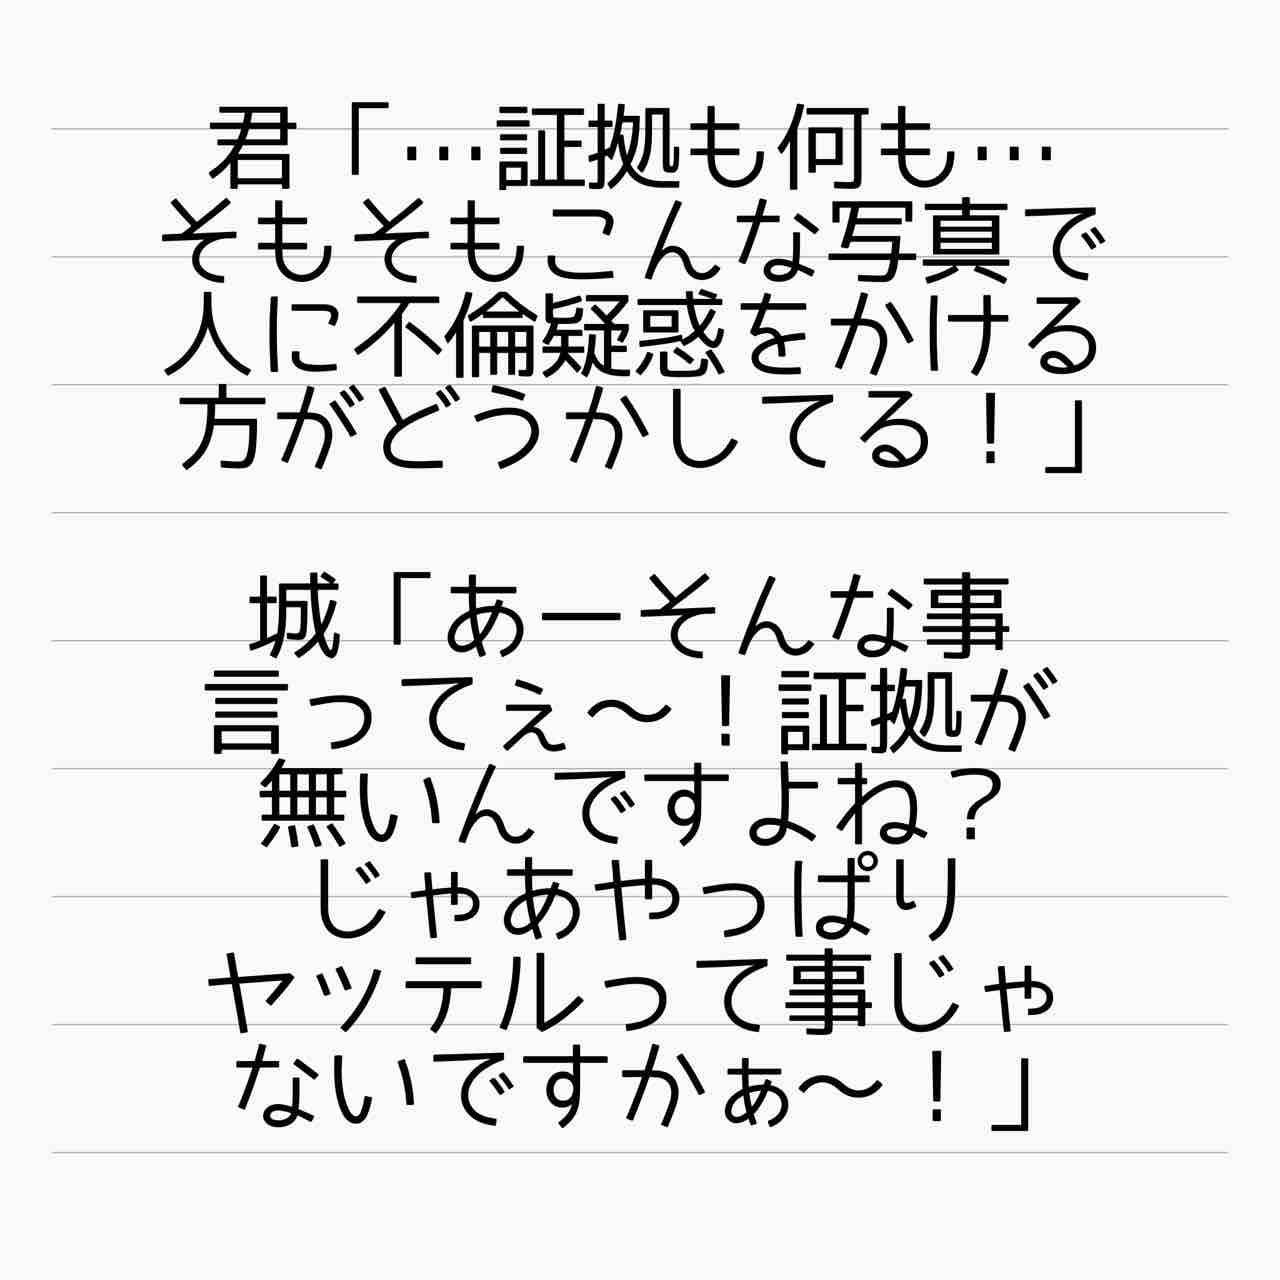 君「…証拠も何も…
そもそもこんな写真で
人に不倫疑惑をかける
方がどうかしてる！」
城「あーそんな事
言ってぇ〜！証拠が
無いんですよね？
じゃあやっぱり
ヤッテルって事じゃ
ないですかぁ〜！」